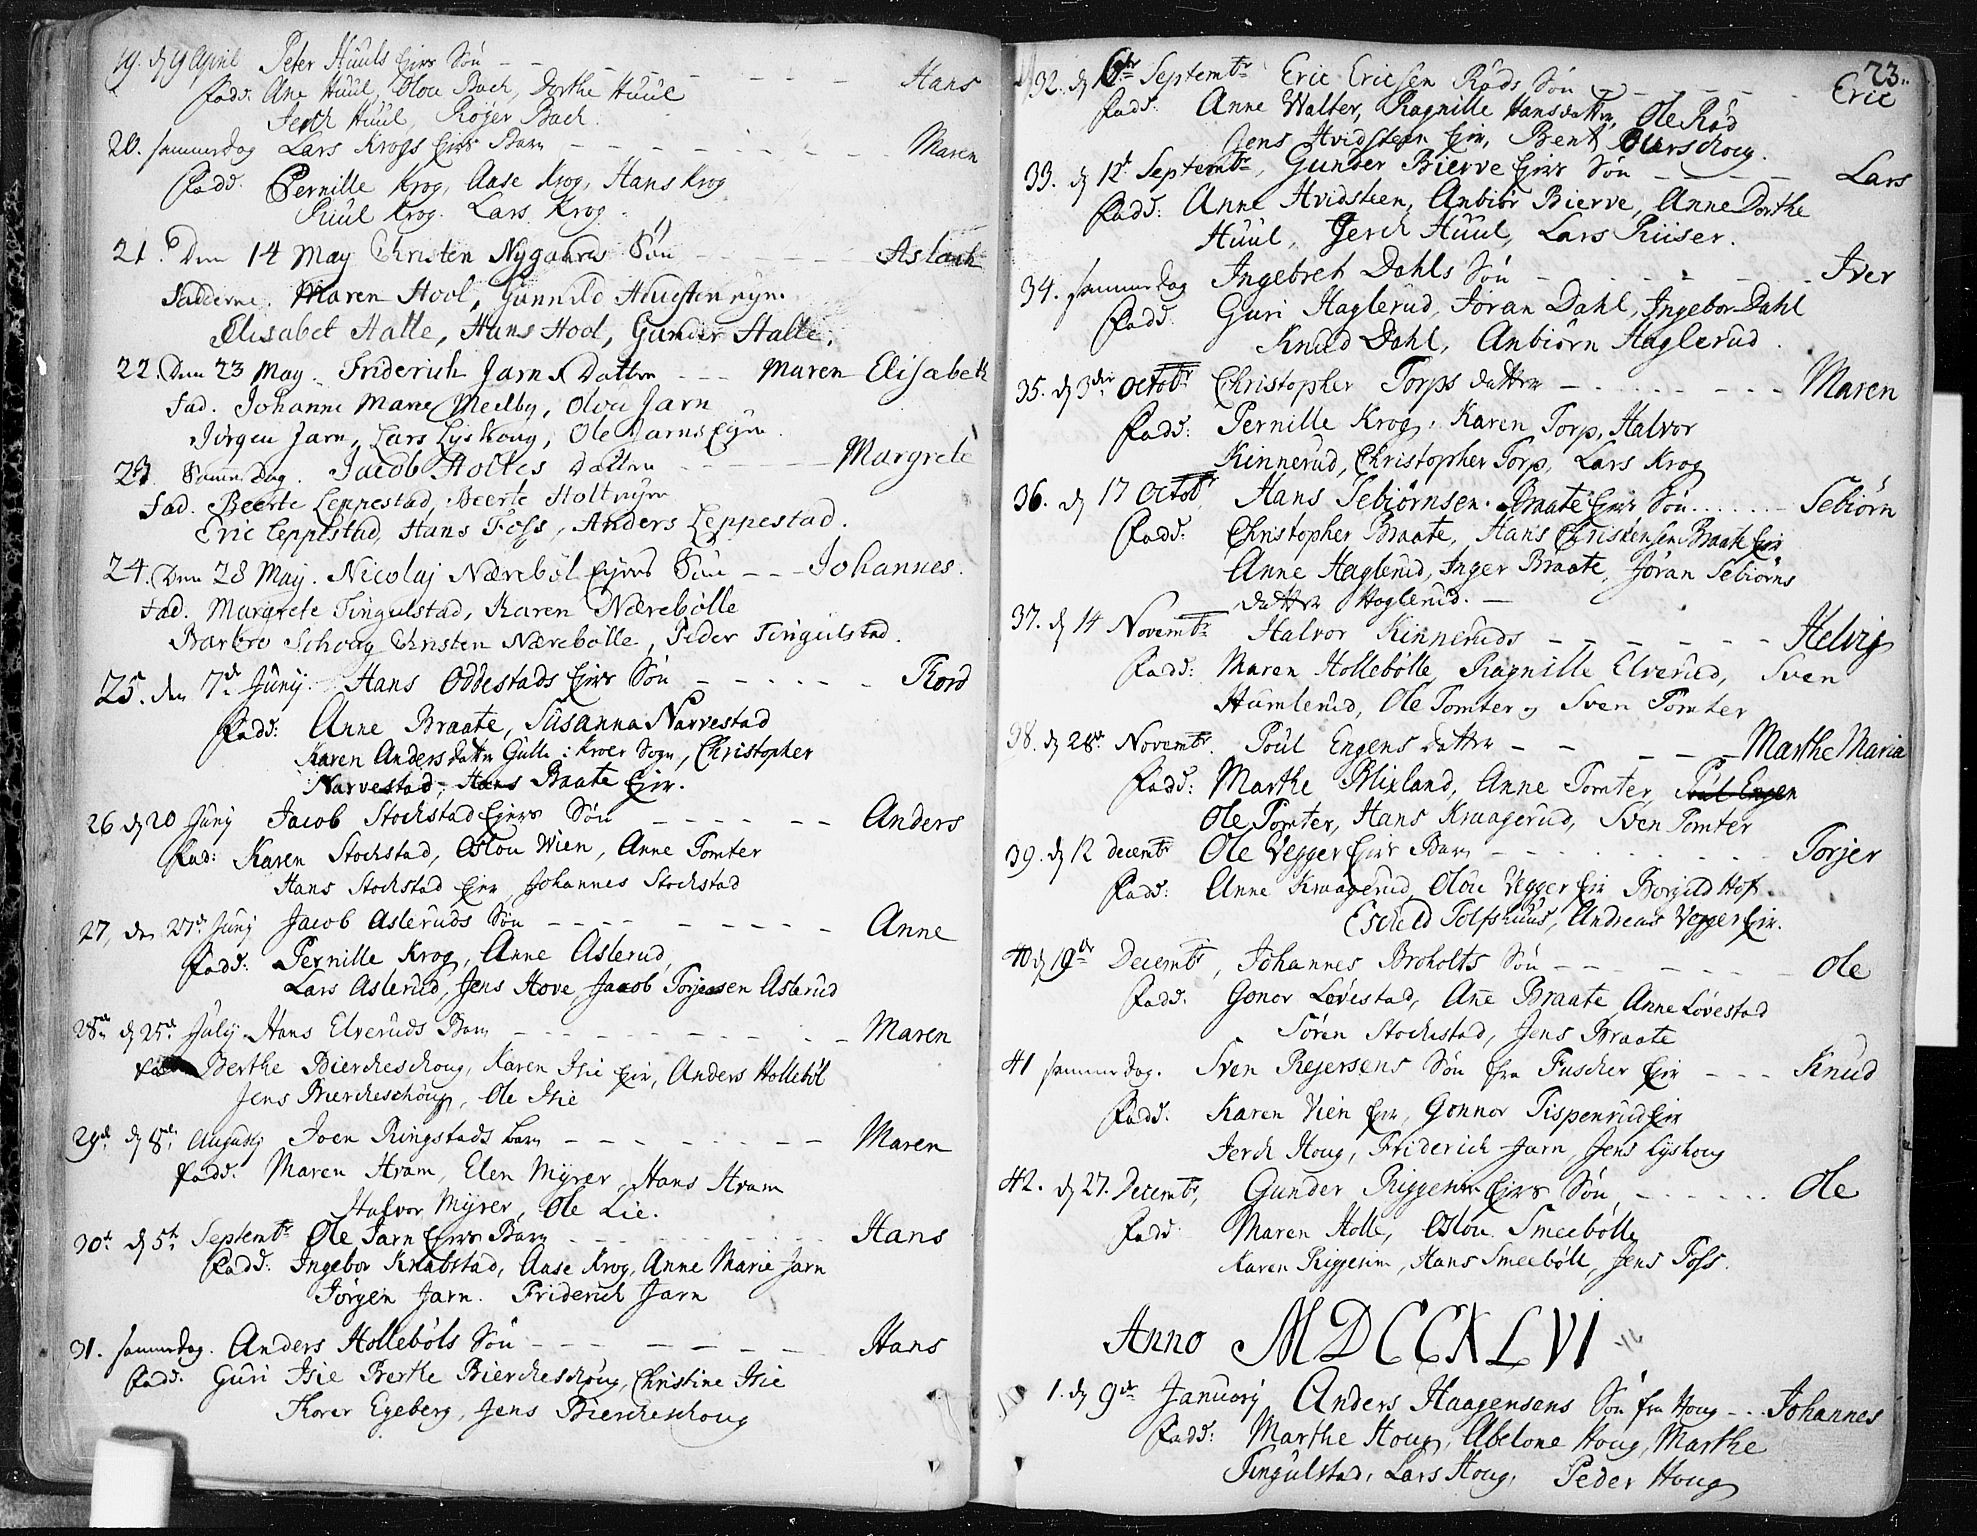 19. d 9 April Peter Huuls Eiers Søn - - - - - - Hans
Fadd: Ane Huul, Olou Bach, Dorthe Huul
Jerch Huul, Röyer Bach.
20. sammerdag Lars Krogs Eiers Barn - - - - - - Maren
Fadd. Pernille Krog, Aase Krog, Hans Krog
Lars Krog.
21. Den 14 May Christen Nygaards Søn - - - - - Aslach
Fadderne. Maren Hool, Gunnild
Elisabet Halle, Hans Hool, Gunder Halle.
22. Den 23 May. Friderich Jarns Datter - - - Maren Elisabeth
Fad. Johanne Marie Meelby, Olou Jarn
Jörgen Jarn, Lars Lyskoug, Ole Jarns Eyer.
23. Samme Dag. Jacob Holtes Datter - - - - Margrete
Fad. Beerte Leppestad, Beerte Holt
Eric Leppestad, Hans Foss, Anders Leppestad.
24. Den 28 May. Nicolaj Nærebøl Eyers Søn - - - Johannes.
Fad. Margrete Tingulstad, Karen Nærebølle
Barbro Schoug Christen Nærebølle, Peder Tingulstad.
25. den 7de Junij. Hans Oddestads Eiers Søn - - - - - Tord
Fadd: Anne Braate, Susanna Narvestad
Karen Anders datter Gulle i Kroer Sogn, Christopher
Narvestad, Hans Braate Eier.
26 d 20 Junij Jacob Stochstad Eiers Søn - - - - - - Anders
Fad: Karen Stochstad, Oslou Wien, Anne Tomter
Hans Stochstad Eier Johannes Stochstad
27, den 27de Junij Jacob Asleruds Søn - - - - - - - Anne
Fadd: Pernille Krog, Anne Aslerud,
Lars Aslerud, Jens Hove, Jacob Torjersen Aslerud
28de d 25de Julij Hans Elveruds Barn - - - - - - Maren
Berthe Biercheschoug, Karen Isie Eier, Anders Hollebøl
Jens Biercheschoug, Ole Isie
29de d 8de Augustij Joen Ringstads barn - - - - - - Maren
Fadd. Maren Hvam, Elen Myrer, Hans Hvam
Halvor Myrer, Ole Lie.
30te d 5te Septembr Ole Jarn Eiers Barn - - - - - Hans
Fadd. Ingebor Knabstad, Aase Krog, Anne Marie Jarn
Jörgen Jarn. Friderich Jarn
31. sammerdag. Anders Hollebøls Søn - - - - - - Hans
Fadd. Guri Isie Berthe Biercheschoug, Christine Isie
Thorer Egeberg, Jens Biercheschoug
23.
32. d Septembr Eric Ericsen Røds Søn - - - - - Eric
Fadd: Anne Walter, Ragnille Hansdatter, Ole Rød
Jens Hvidsteen Eier, Bent
33. d 12t Septembr, Gunder Bierve Eiers Søn - - - - Lars
Fadd: Anne Hvidsteen, Anbiør Bierve, Anne Dorthe
Huul, Jerch Huul, Lars
34. sammerdag Ingebreth Dahls Søn - - - - - Iver
Fadd. Guri Haglerud, Joran Dahl, Ingebor Dahl
Knud Dahl, Anbiörn Haglerud.
35. d 3die Octobr Christopher Torps datter - - - - - Maren
Fadd: Pernille Krog, Karen Torp, Halvor
Kinnerud, Christopher Torp, Lars Krog
36. d 17 Octobr Hans Tebiörnsen Braate Eiers Søn...... Tebiörn
Fadd: Christopher Braate, Hans Christensen Braate Eier
Anne Haglerud, Inger Braate, Jöran Tebiörns
datter Haglerud.
37. d 14 Novembr Halvor Kinneruds - - - - - - Helvig
Fadd: Maren Hollebølle, Ragnille Elverud, Sven
Humlerud, Ole Tomter og Sven Tomter
38. d 28de Novembr. Poul Engens datter - - - - Marthe Maria
Fadd: Marthe Blixland, Anne Tomter, Poul Engen
Ole Tomter, Hans Kraagerud, Sven Tomter
39. d 12 decembr Ole Vegger Eiers Barn - - - - - Torjer
Fadd: Anne Kraagerud Olou Vegger Eier Borgild Hof.
Eschild Tolfshuus, Andreas Vegger Eier.
40 d 19de Decembr, Johannes Broholts Søn - - - - - Ole
Fadd: Gonor Løvestad, Ane Braate, Anne Løvestad
Sören Stochstad, Jens Braate
41 sammerdag. Sven Rejersens Søn fra Fuscher Eier - - - Knud
Fadd. Karen Vien Eier, Gonnor Tispenrud Eier
Jerch Houg, Friderich Jarn, Jens Lyshoug
42. d 27. Decembr, Gunder Riggerin Eiers Søn - - - - - - Ole
Fadd: Maren Holle, Oslou Smeebølle
Karen Riggerin, Hans Smeebøll, Jens Foss.
Anno MDCCXLVI
1. d 9de Januarij Anders Haagensens Søn fra Houg - - - Johannes
Fadd: Marthe Houg, Abelone Houg, Marthe
Tingulstad, Lars Houg, Peder Houg